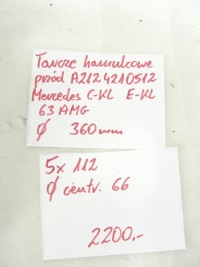 Tarcze hamulcowe
przód A2124210512
Mercedes C-KL E-KL
63 AMG
Ø 360mm
5x 112
Ø centr. 66
2200,-